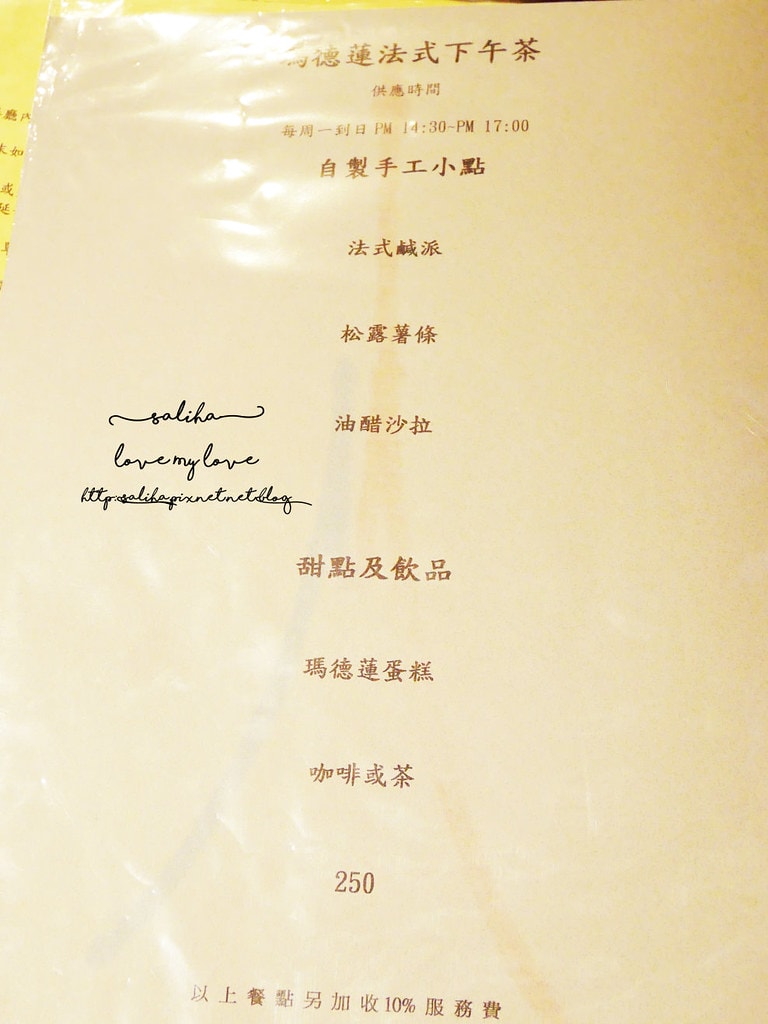 瑪德蓮法式下午茶
供應時間
每周一到日 PM 14:30-PM 17:00
自製手工小點
法式鹹派
松露薯條
saliha
油醋沙拉
love my love
http:salihapixnetnetblog
甜點及飲品
瑪德蓮蛋糕
咖啡或茶
250
以上餐點另加收10%服務費